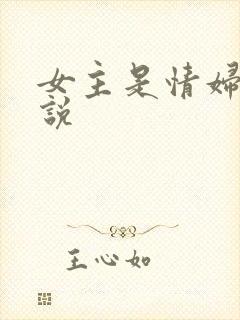 女主是情婦
說
王心如